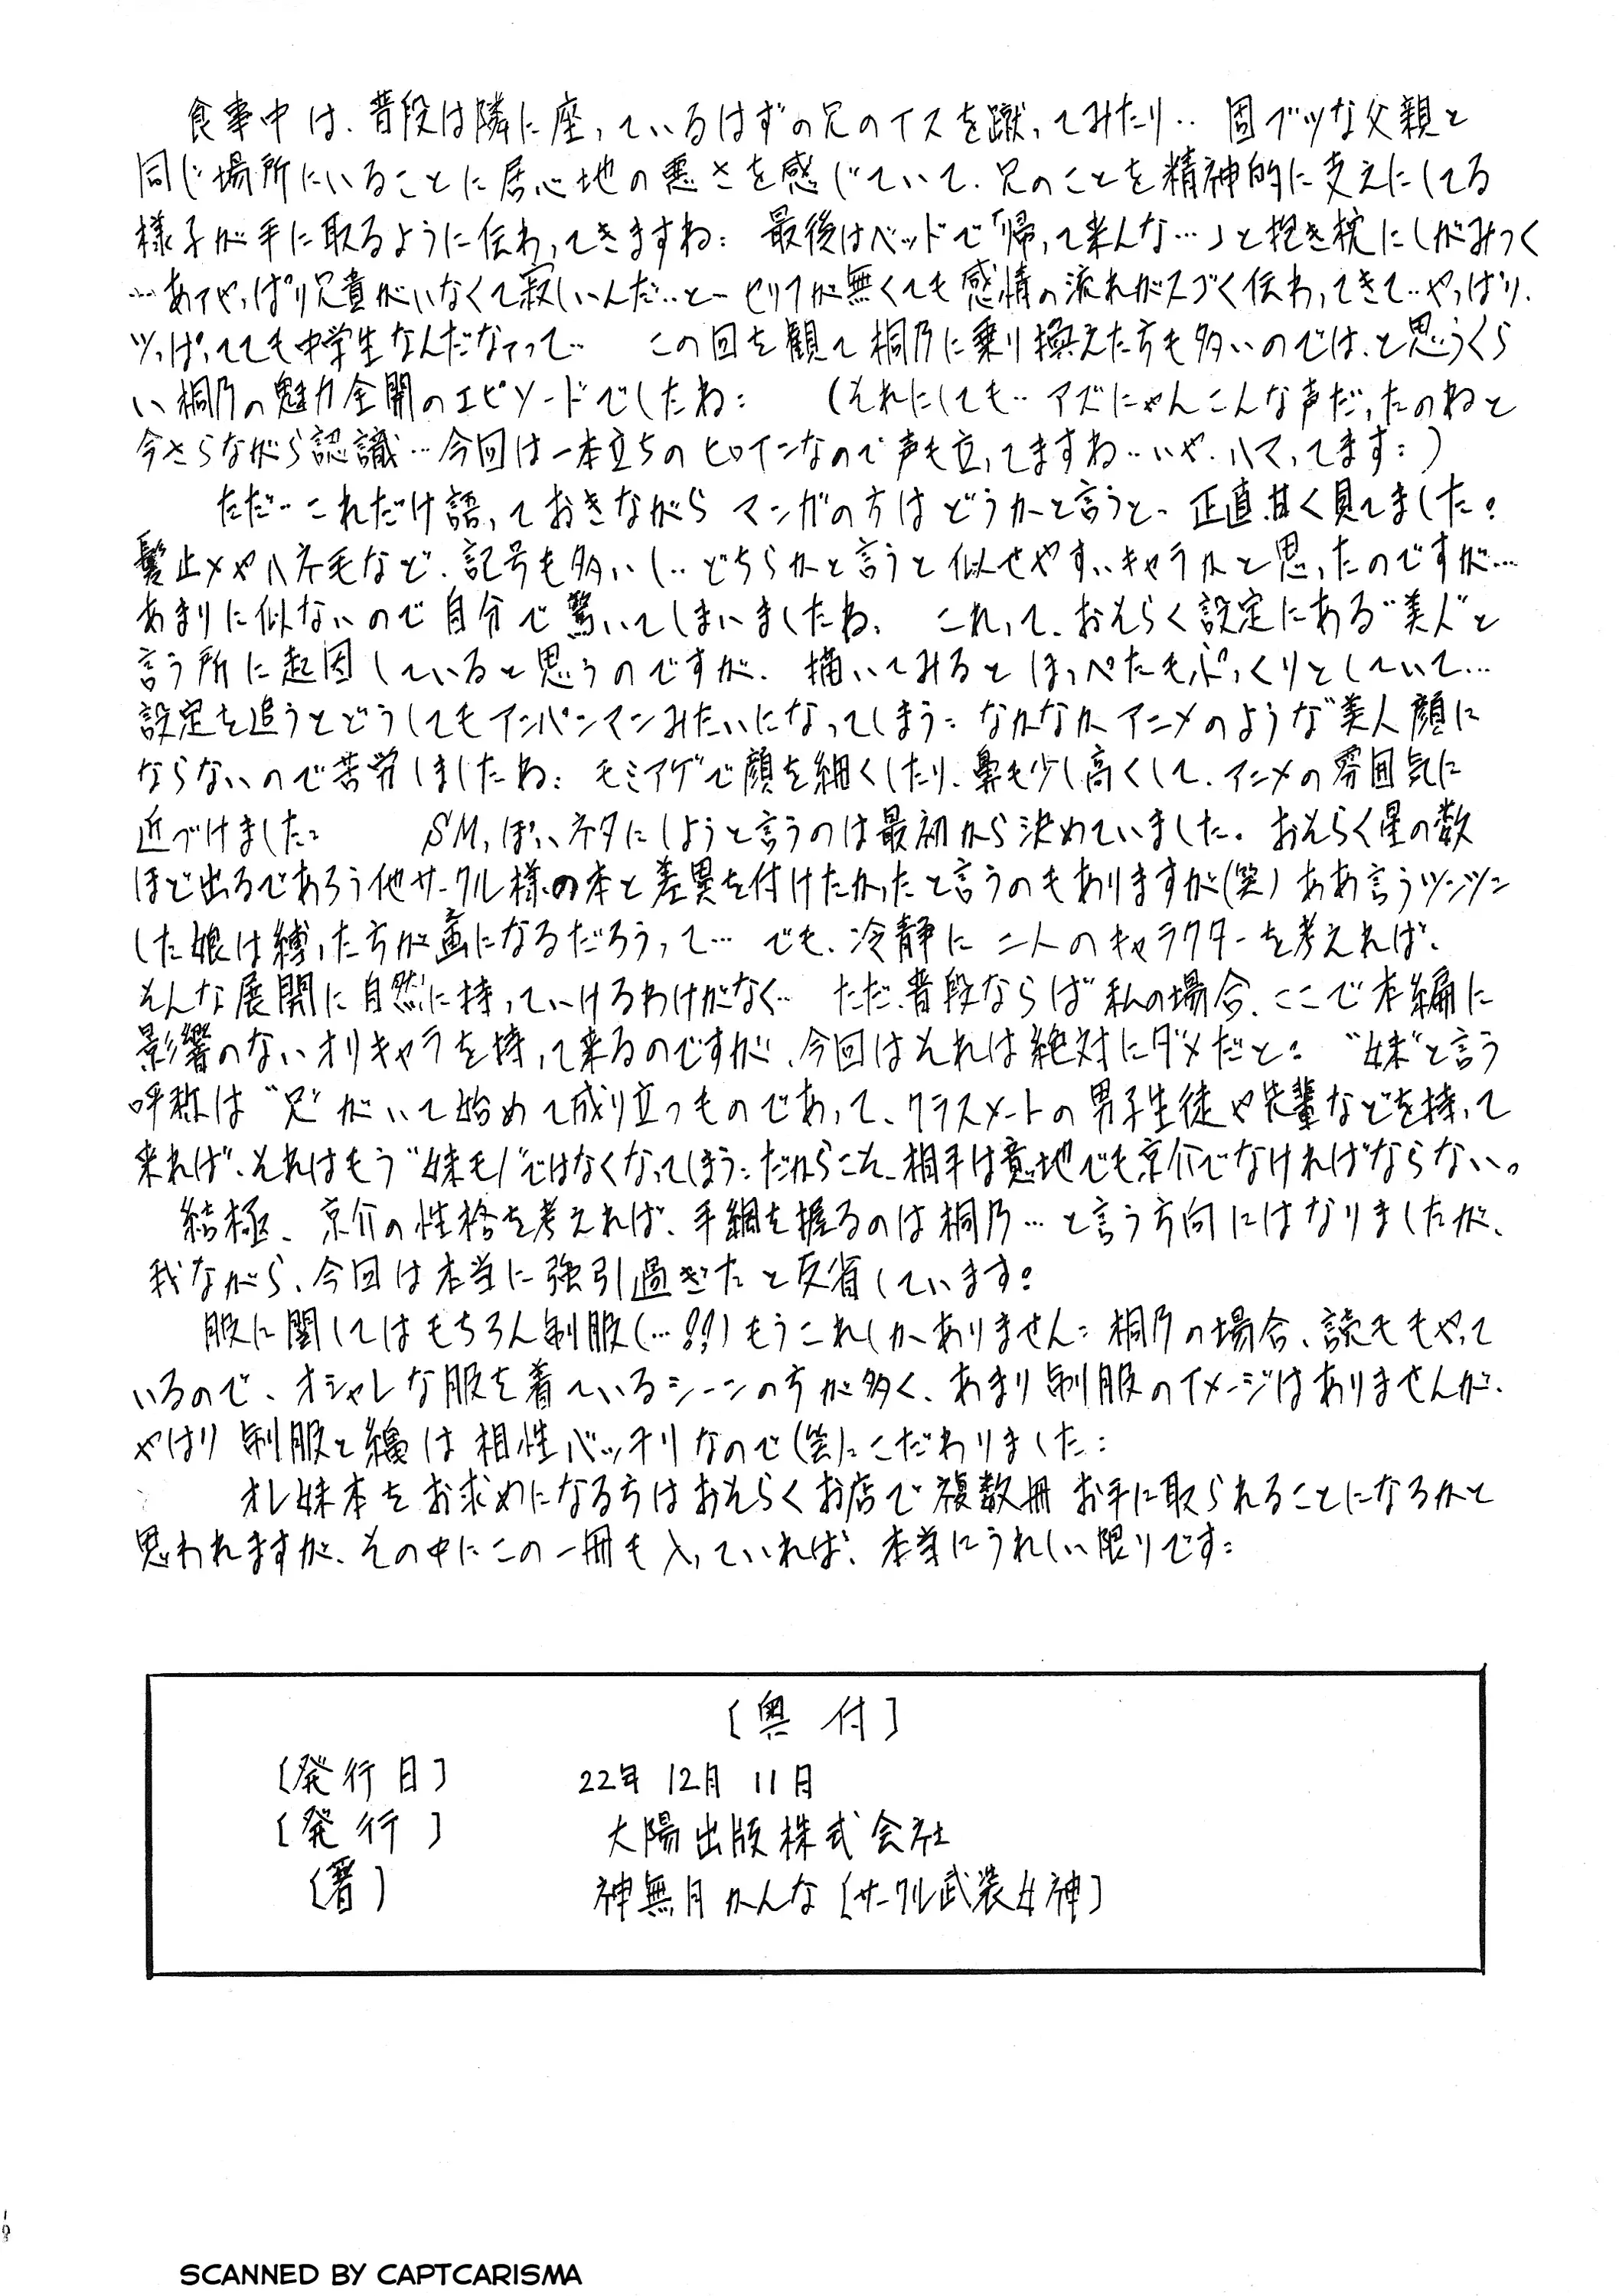 食事中は、普段は隣に座っているはずの兄のイスを蹴ってみたり‥ 固ブツな父親と
同じ場所にいることに居心地の悪さを感じていて、兄のことを精神的に支えにしてる
様子が手に取るように伝わってきますね: 最後はベッドで「帰って来んな…」と抱き枕にしがみつく
…あァやっぱり兄貴がいなくて寂しいんだ‥と─ セリフが無くても感情の流れがスゴく伝わってきて‥やっぱり、
ツッぱってても中学生なんだなァって‥ この回を観て桐乃に乗り換えた方も多いのでは、と思うくら
い桐乃の魅力全開のエピソードでしたね: (それにしても‥アズにゃんこんな声だったのねと
今さらながら認識…今回は一本立ちのヒロインなので声も立ってますね‥いや、ハマってます:)
ただ‥これだけ語っておきながら マンガの方はどうかと言うと、正直甘く見てました:
髪止メやハネ毛など、記号も多いし‥どちらかと言うと似せやすいキャラかと思ったのですが…
あまりに似ないので自分で驚いてしまいましたね: これって、おそらく設定にある"美人"と
言う所に起因していると思うのですが、描いてみるとほっぺたもぷっくりとしていて…
設定を追うとどうしてもアンパンマンみたいになってしまう: なかなかアニメのような"美人顔に
ならないので苦労しましたね: モミアゲで顔を細くしたり、鼻も少し高くして、アニメの雰囲気に
近づけました: SMっぽいネタにしようと言うのは最初から決めていました。おそらく星の数
ほど出るであろう他サークル様の本と差異を付けたかったと言うのもありますが(笑) ああ言うツンツン
した娘は縛った方が画になるだろうって… でも、冷静に二人のキャラクターを考えれば、
そんな展開に自然に持っていけるわけがなく‥ ただ、普段ならば私の場合、ここで本編に
影響のないオリキャラを持って来るのですが、今回はそれは絶対にダメだと: "妹"と言う
呼称は"兄"がいて始めて成り立つものであって、クラスメートの男子生徒や先輩などを持って
来れば、それはもう"妹モノ"ではなくなってしまう: だからこそ、相手は意地でも京介でなければならない。
結極、京介の性格を考えれば、手綱を握るのは桐乃…と言う方向にはなりましたが、
我ながら、今回は本当に強引過ぎたと反省しています:
服に関してはもちろん制服(…!!)もうこれしかありません: 桐乃の場合、読モもやって
いるので、オシャレな服を着ているシーンの方が多く、あまり制服のイメージはありませんが、
やはり制服と縄は相性バッチリなので(笑)こだわりました:
オレ妹本をお求めになる方はおそらくお店で複数冊お手に取られることになるかと
思われますが、その中にこの一冊も入っていれば、本当にうれしい限りです:
[奥付]
[発行日] 22年12月11日
[発行] 大陽出版株式会社
[著] 神無月かんな[サークル武装女神]
SCANNED BY CAPTCARISMA